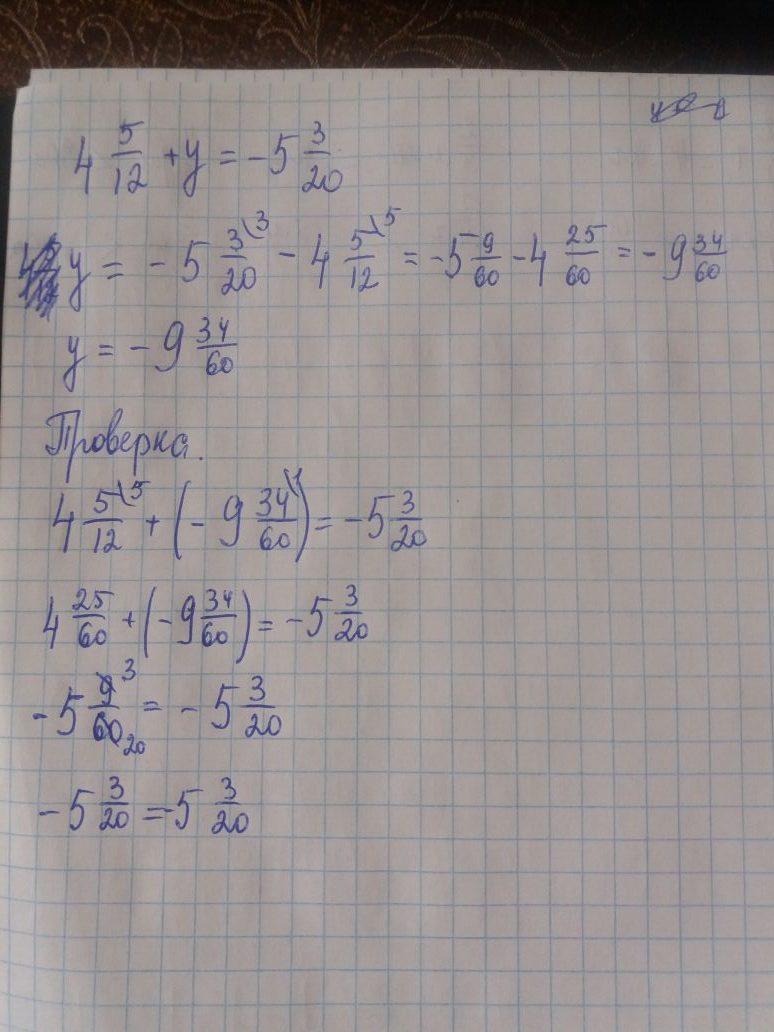 4 5/12 + y = -5 3/20
y = -5 3/20 \3 - 4 5/12 \5 = -5 9/60 - 4 25/60 = -9 34/60
y = -9 34/60
Проверка.
4 5/12 \5 + (-9 34/60 \1) = -5 3/20
4 25/60 + (-9 34/60) = -5 3/20
-5 9/60 3 20 = -5 3/20
-5 3/20 = -5 3/20